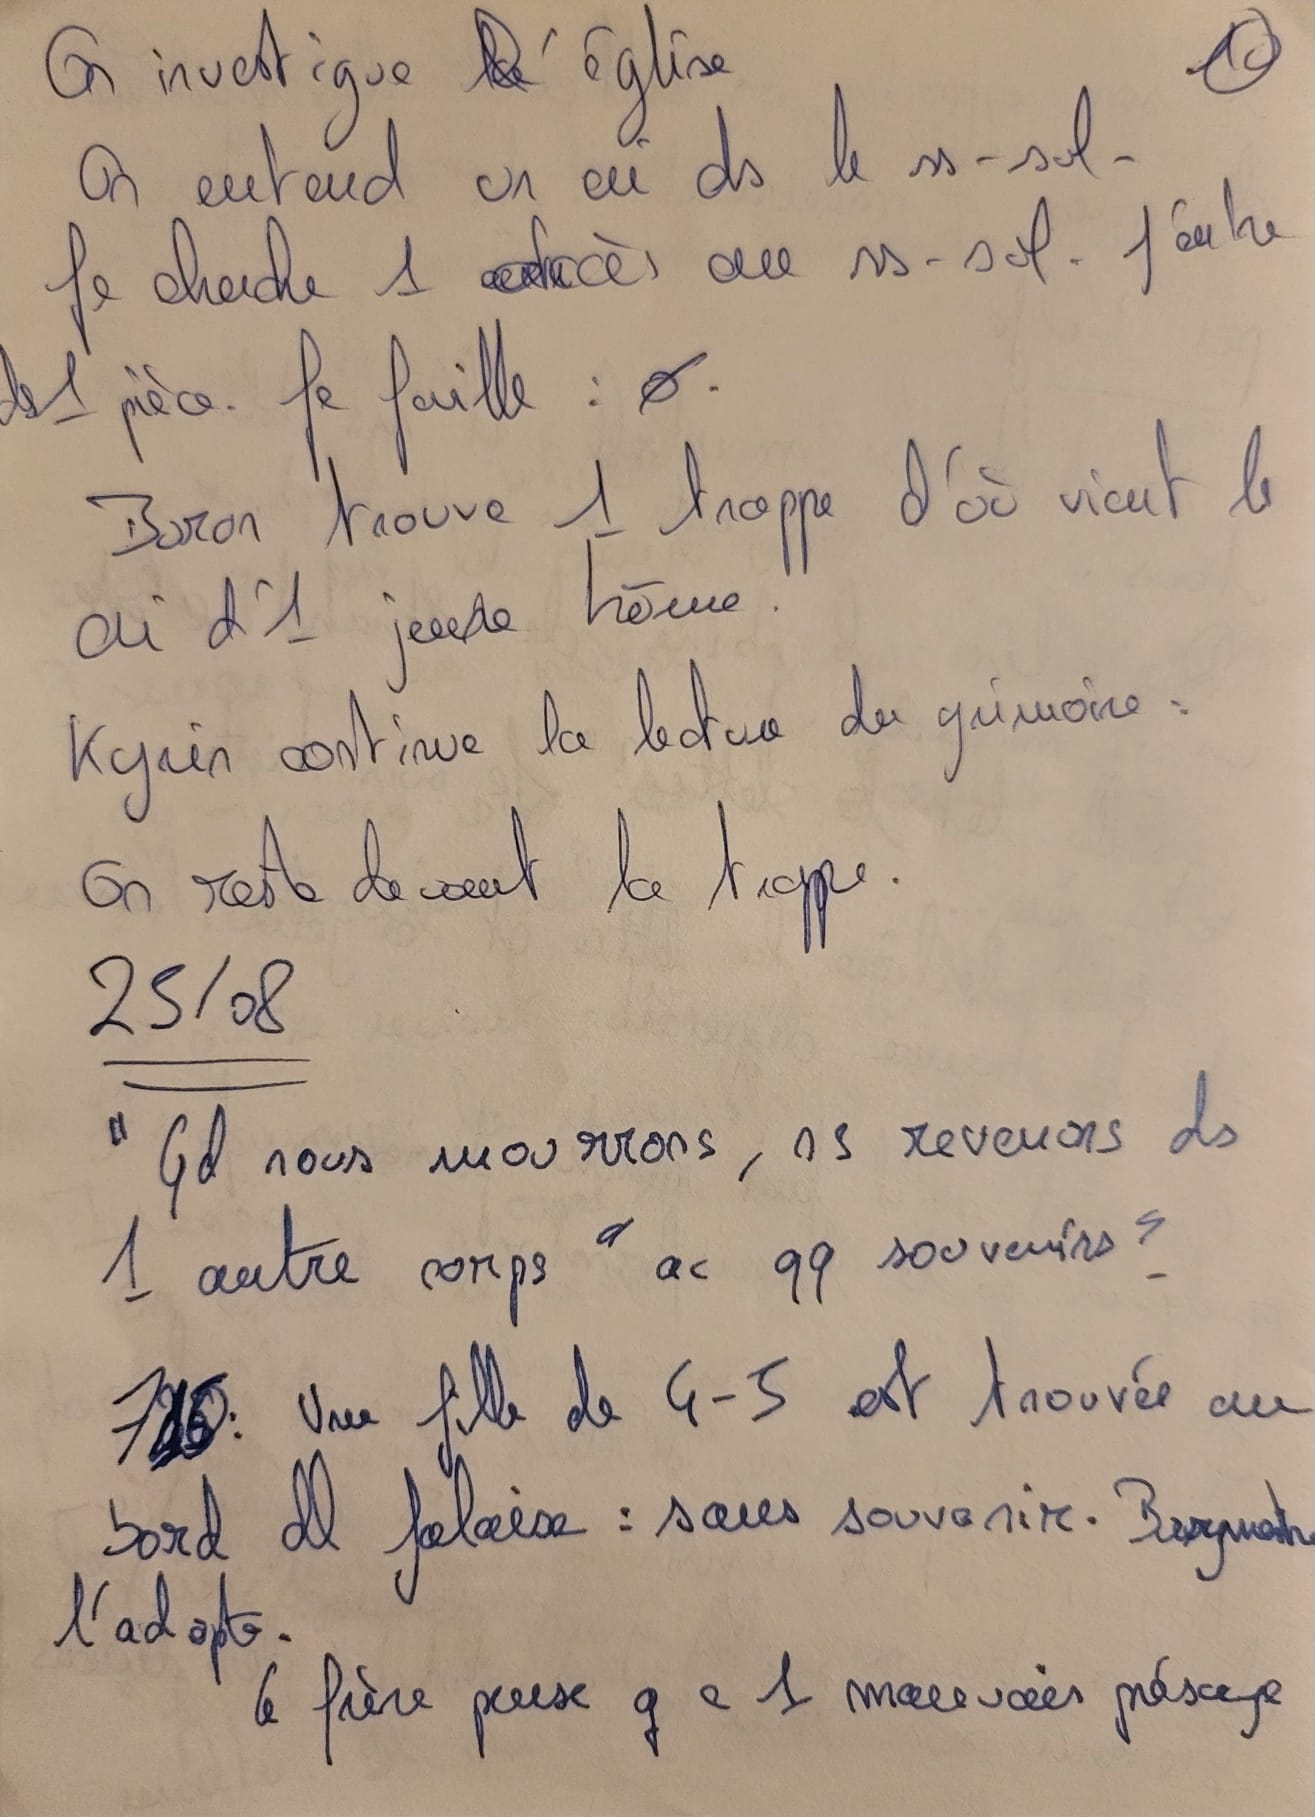 On investigue l'église
10
On entend un cri ds le ss-sol.
Je cherche 1 accès au ss-sol. J'entre
ds 1 pièce. Je fouille : ø.
Boron trouve 1 trappe d'où vient le
cri d'1 jeune hōme.
Kyrin continue la lecture du grimoire :
On reste devant la trappe.
25/08
"Qd nous mourrons, ns revenons ds
1 autre corps" ac qq souvenirs ?
Une fille de 4-5 est trouvée au
bord dl falaise : sans souvenir. Burgmestre
l'adopte.
le frère pense q c 1 mauvais présage